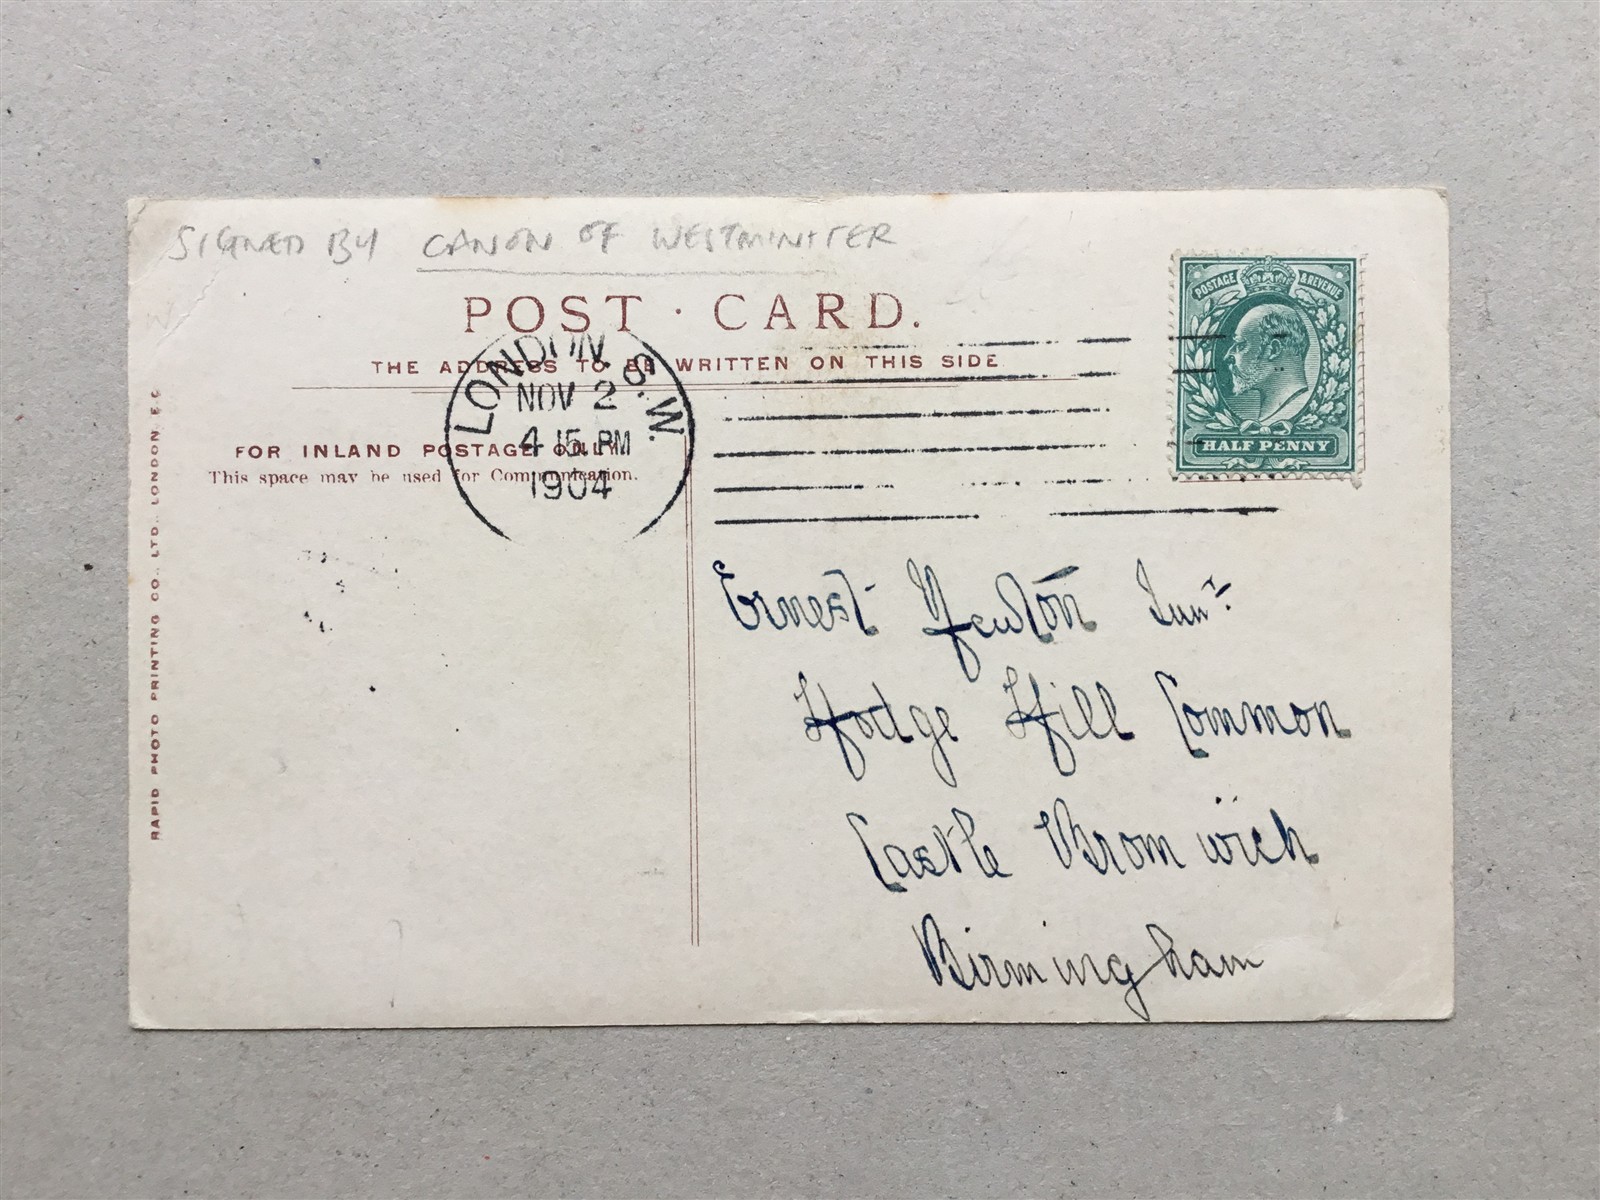 SIGNED BY CANON OF WESTMINSTER
POST · CARD.
THE ADDRESS TO BE WRITTEN ON THIS SIDE
FOR INLAND POSTAGE ONLY.
This space may be used for Communication.
LONDON. S.W.
NOV 2
4 15 PM
1904
POSTAGE & REVENUE
HALF PENNY
RAPID PHOTO PRINTING CO., LTD., LONDON, E.C.
Ernest Newton Junr.
Hodge Hill Common
Castle Bromwich
Birmingham